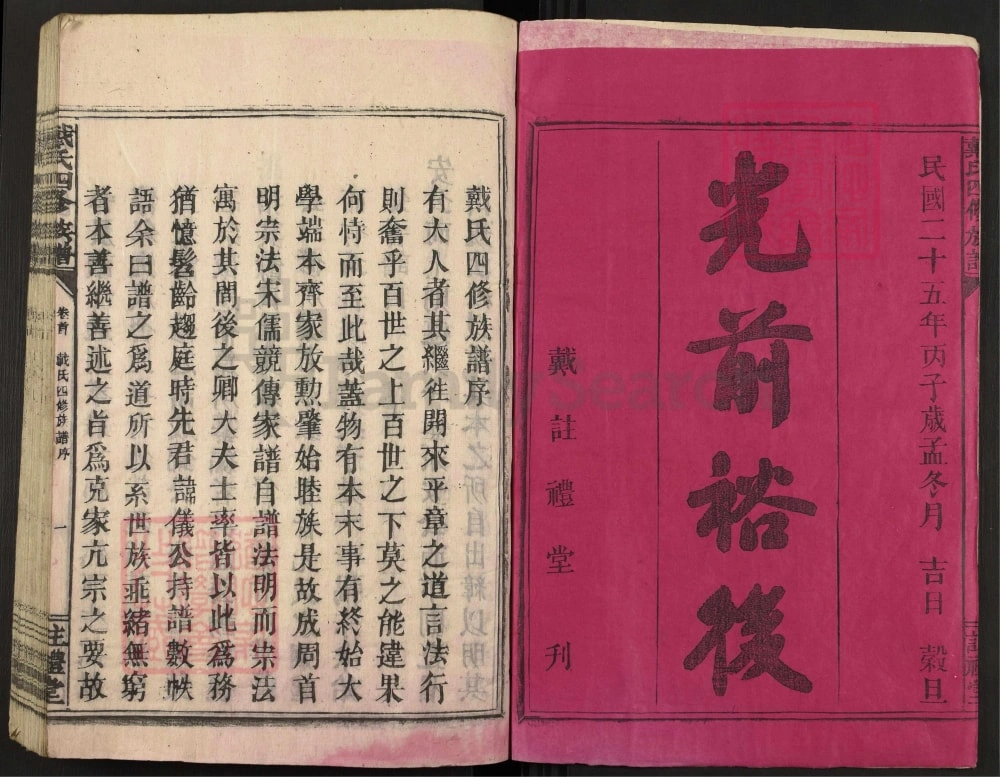 民國二十五年丙子歲孟冬月 吉日 穀旦
光前裕後
戴註禮堂刊
戴氏四修族譜序
有大人者其繼往開來平章之道言法行
則奮乎百世之上百世之下莫之能違果
何恃而至此哉蓋物有本末事有終始大
學端本齊家放勲肇始睦族是故成周首
明宗法宋儒競傳家譜自譜法明而宗法
寓於其間後之卿大夫士率皆以此爲務
猶憶髫齡趨庭時先君諱儀公持譜數帙
語余曰譜之爲道所以系世族垂緒無窮
者本善繼善述之旨爲克家亢宗之要故
戴氏四修族譜
卷首 戴氏四修族譜序
一
註禮堂
FamilySearch